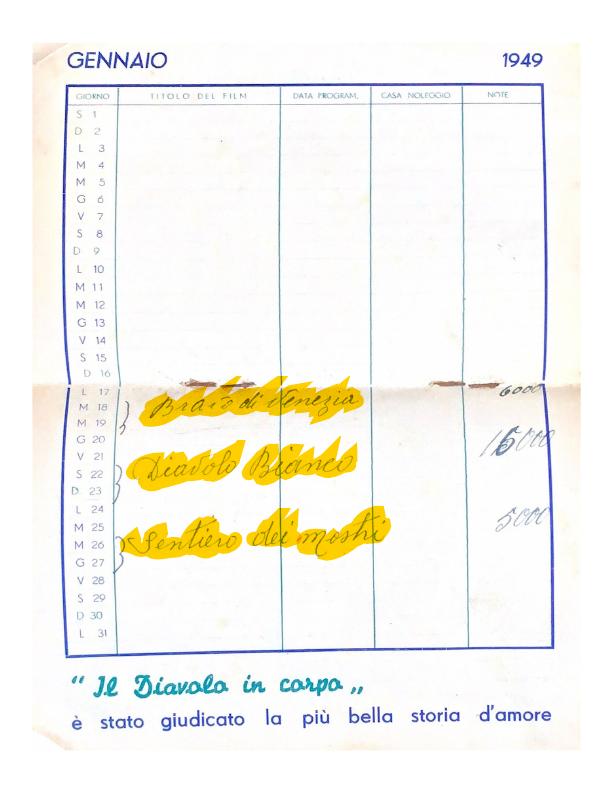 GENNAIO 1949
GIORNO TITOLO DEL FILM DATA PROGRAM. CASA NOLEGGIO NOTE
S 1
D 2
L 3
M 4
M 5
G 6
V 7
S 8
D 9
L 10
M 11
M 12
G 13
V 14
S 15
D 16
L 17 6000
M 18 Bravo di Venezia
M 19
G 20 15000
V 21
S 22 Diavolo Bianco
D 23
L 24
M 25 5000
M 26 Sentiero dei mostri
G 27
V 28
S 29
D 30
L 31
“ Il Diavolo in corpo „
è stato giudicato la più bella storia d'amore